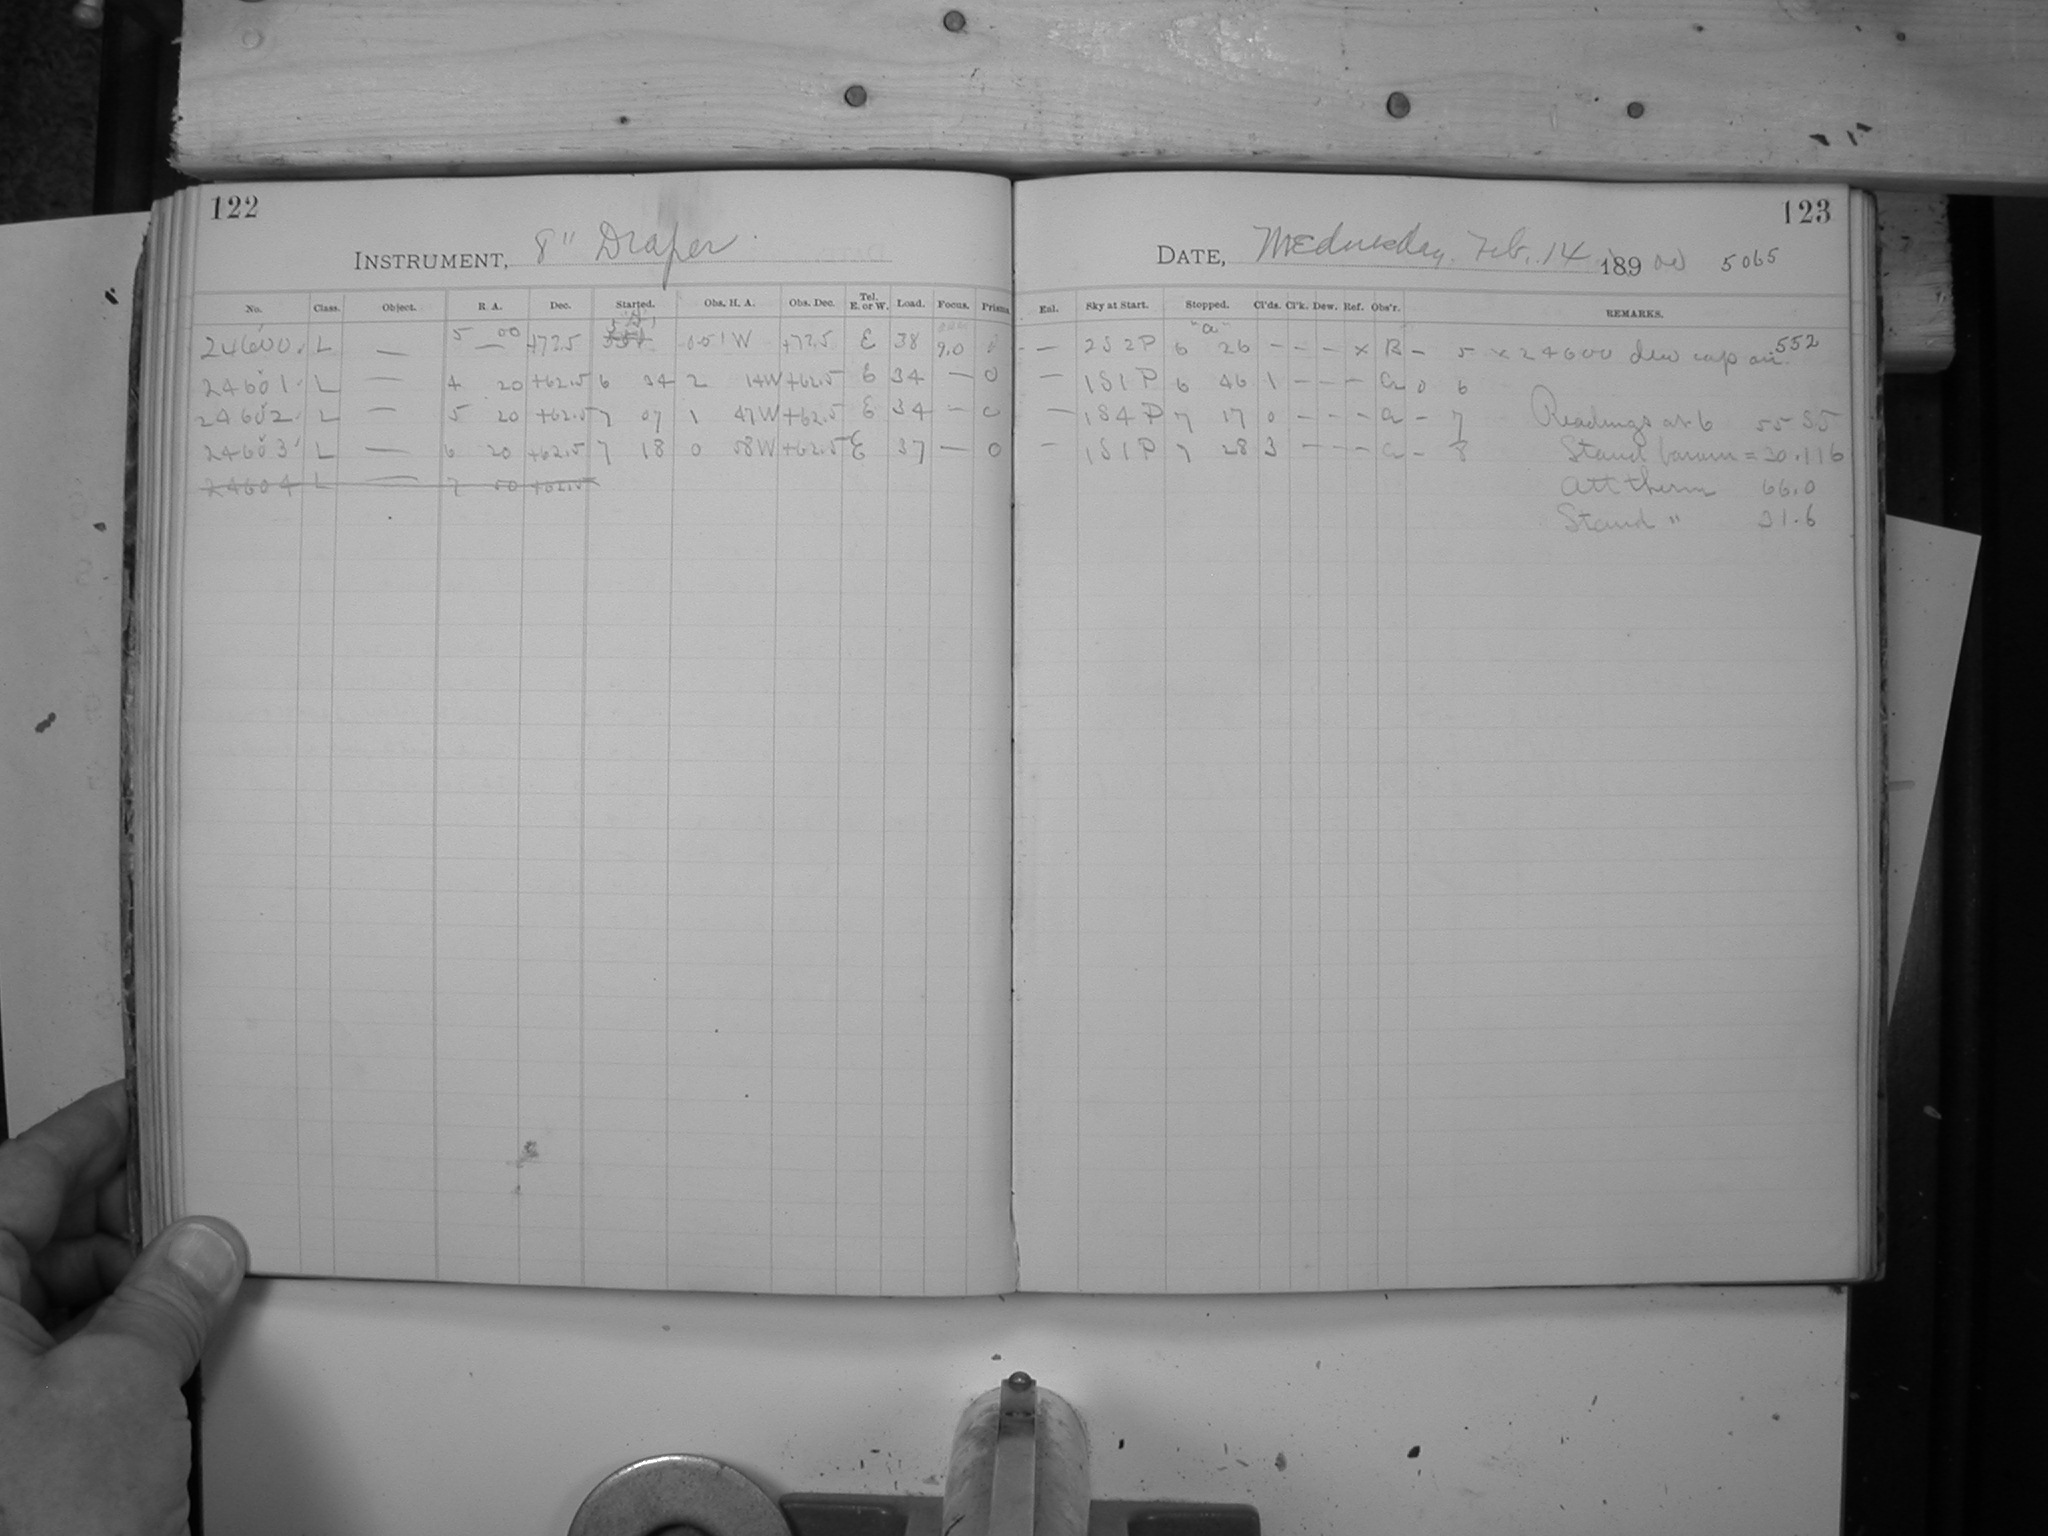 122
INSTRUMENT, 8" Draper
No. Class. Object. R. A. Dec. Started. Obs. H. A. Obs. Dec. Tel. E. or W. Load. Focus. Prisms.
24600. L — 5 00 +72.5 0.51 W +72.5 E 38 9.0
24601. L — 4 20 +62.5 6 34 2 14W +62.5 E 34 — 0
24602. L — 5 20 +62.5 7 07 1 47W +62.5 E 34 — 0
24603 L — 6 20 +62.5 7 18 0 58W +62.5 E 37 — 0
24604 L — 7 +62.5
123
DATE, Wednesday, Feb. 14 189 00 5065
Enl. Sky at Start. Stopped. Cl'ds. Cl'k. Dew. Ref. Obs'r. REMARKS.
"a"
— 2S2P 6 26 – – – x B – 5 x 24600 dew cap on. 552
— 1S1P 6 46 1 – – – a 0 6
— 1S4P 7 17 0 – – – a – 7 Readings at 6 55 S5
— 1S1P 7 28 3 – – – a – 8 Stand barom = 30.116
Att therm 66.0
Stand " 31.6